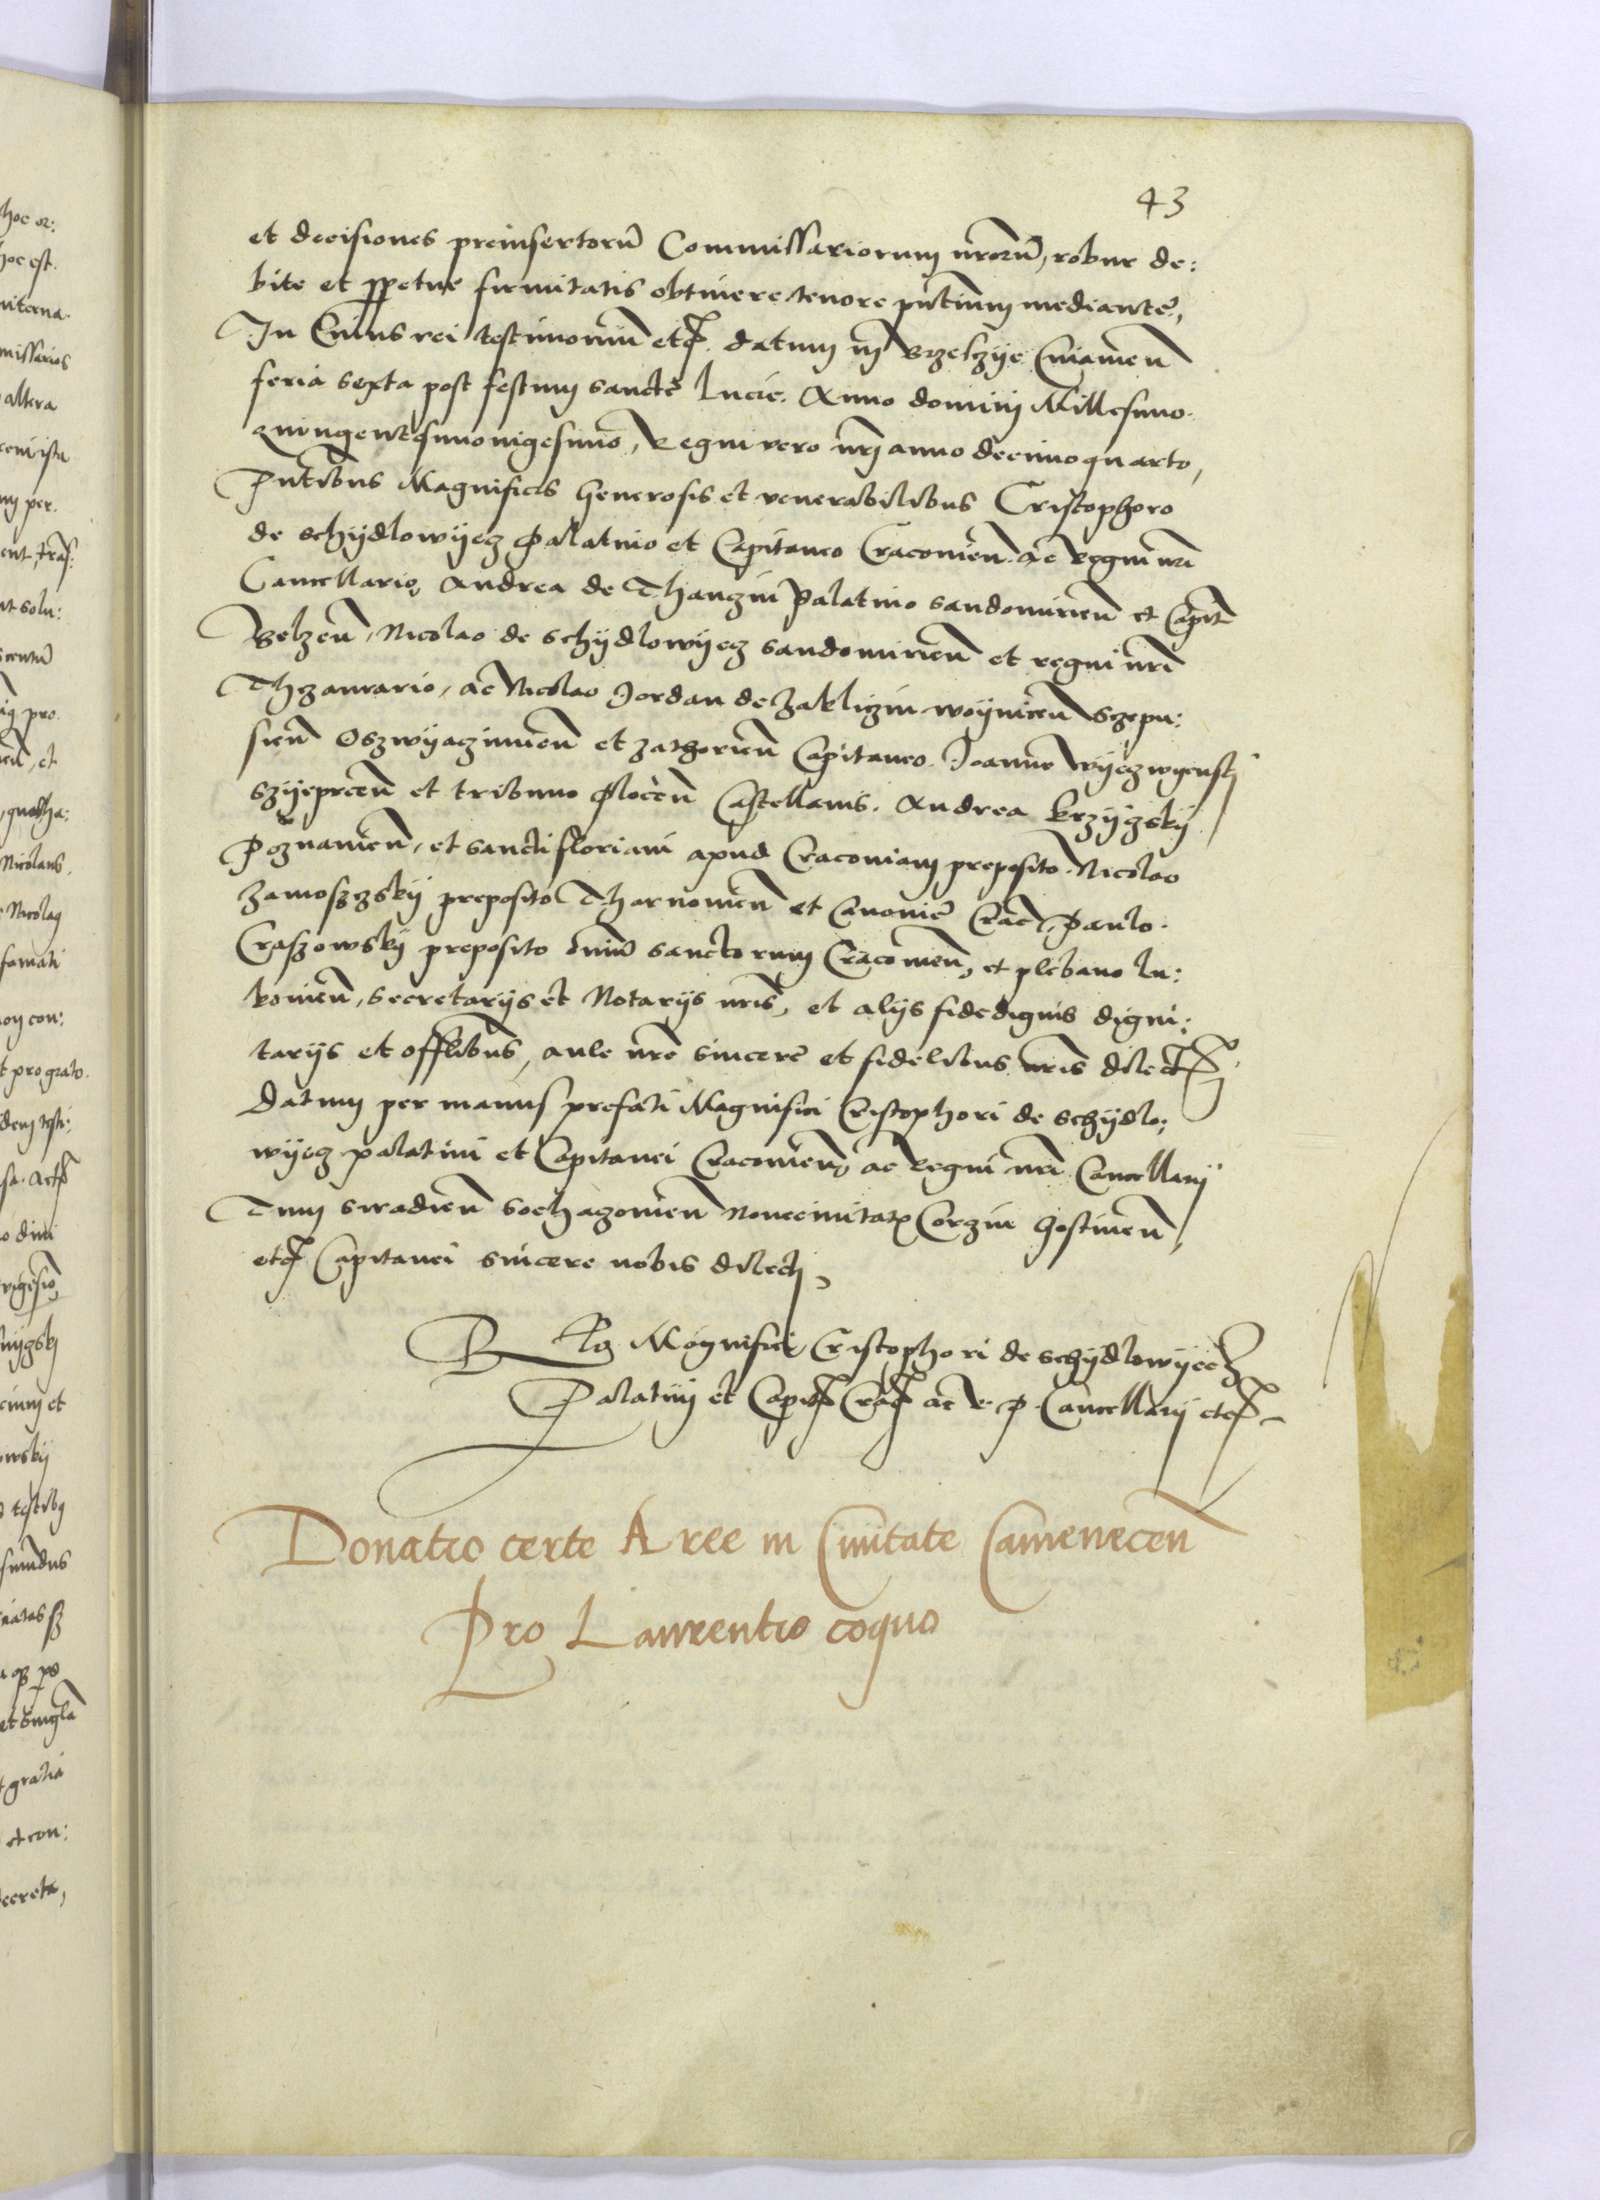 43
et decisiones preinsertorũ Commissariorum nrorũ, robur de:
bite et ppetue firmitatis obtinere tenore pntium mediante,
In Cuius rei testimoniũ etc. datum in Brzesczye Cuiavien
feria sexta post festum sancte Lucie. Anno domini Millesimo
quingentesimovigesimo, Regni vero nrj anno decimoquarto,
Pntibus Magnificis Generosis et venerabilibus Cristophoro
de schydlowyecz Palatino et Capitaneo Cracovien. ac Regni nri
Cancellario, Andrea de Thanczin Palatino sandomirien et Capit
Belzen, Nicolao de schydlowyecz sandomirien et regni nri
Thezaurario, ac Nicolao Jordan de Zakliczin woynicen Sczepu:
sien Oszwyaczimien et zathorien Capitaneo. Joanne wyeczwyenskj
Szyeprcen et tribuno Plocen Castellanis. Andrea krzyczsky
Poznanien, et sancti floriani apud Cracoviam preposito. Nicolao
Zamoszczsky preposito Tharnovien et Canonic Crac, Paulo
Craszowsky preposito omniũ sanctorum Cracovien, et plebano lu:
bonien, secretarijs et Notarijs nris, et alijs fidedignis digni:
tarijs et offlibus, aule nre sincere et fidelibus nris dilectis
Datum per manus prefati Magnifici Cristophori de schydlo:
wyecz palatini et Capitanei Cracovien, ac Regni nri Cancellarij
Tum Siradien Sochaczovien Novecivitatis Corzin Gostinen,
etc Capitanei sincere nobis dilecti,
Rlo Magnifici Cristophori de schydlowyecz
Palatinj et Capit Crac ac R. P. Cancellarij etc
Donatio certe Aree in Civitate Camenecen
Pro Laurentio coquo